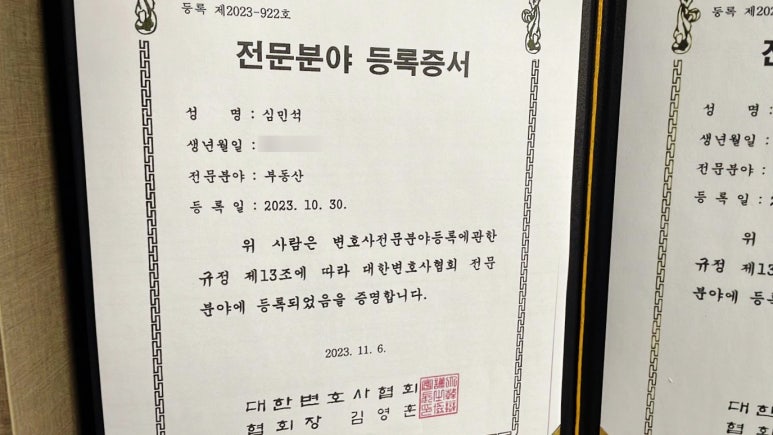 등록 제2023-922호
전문분야 등록증서
성 명 : 심민석
생년월일 :
전문분야 : 부동산
등 록 일 : 2023. 10. 30.
위 사람은 변호사전문분야등록에관한
규정 제13조에 따라 대한변호사협회 전문
분야에 등록되었음을 증명합니다.
2023. 11. 6.
대한변호사협회
협회장 김영훈
등록 제202
전
성 명 :
생년월일 :
전문분야 :
등 록 일 :
위
규정 제13
분야에 등
대한
협회